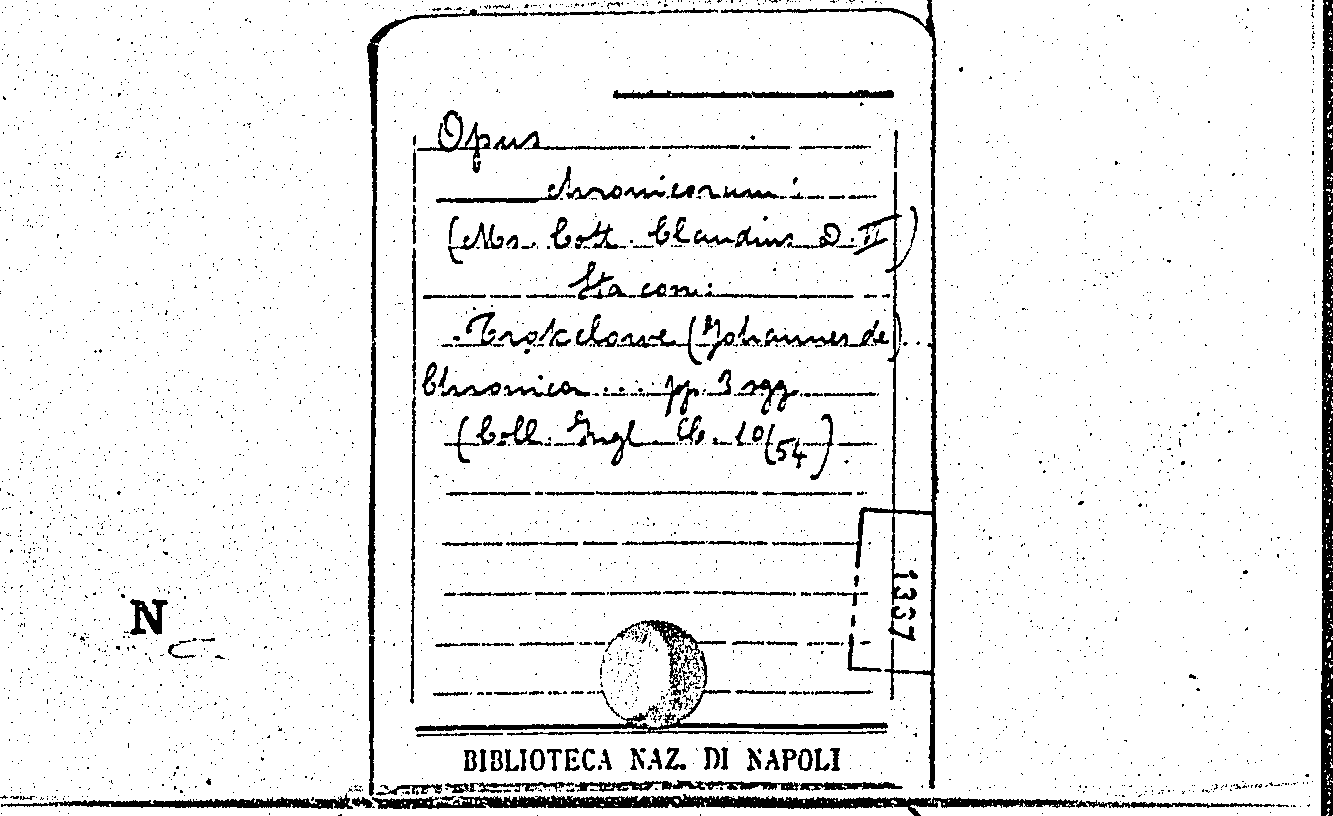 Opus
chronicorum:
(Ms. Cott. Claudius D. II)
Sta con:
Trokelowe (Johannes de)...
Chronica .... pp. 3 sgg.
(Coll. Ingl. Cb. 10/54)
1337
N
BIBLIOTECA NAZ. DI NAPOLI